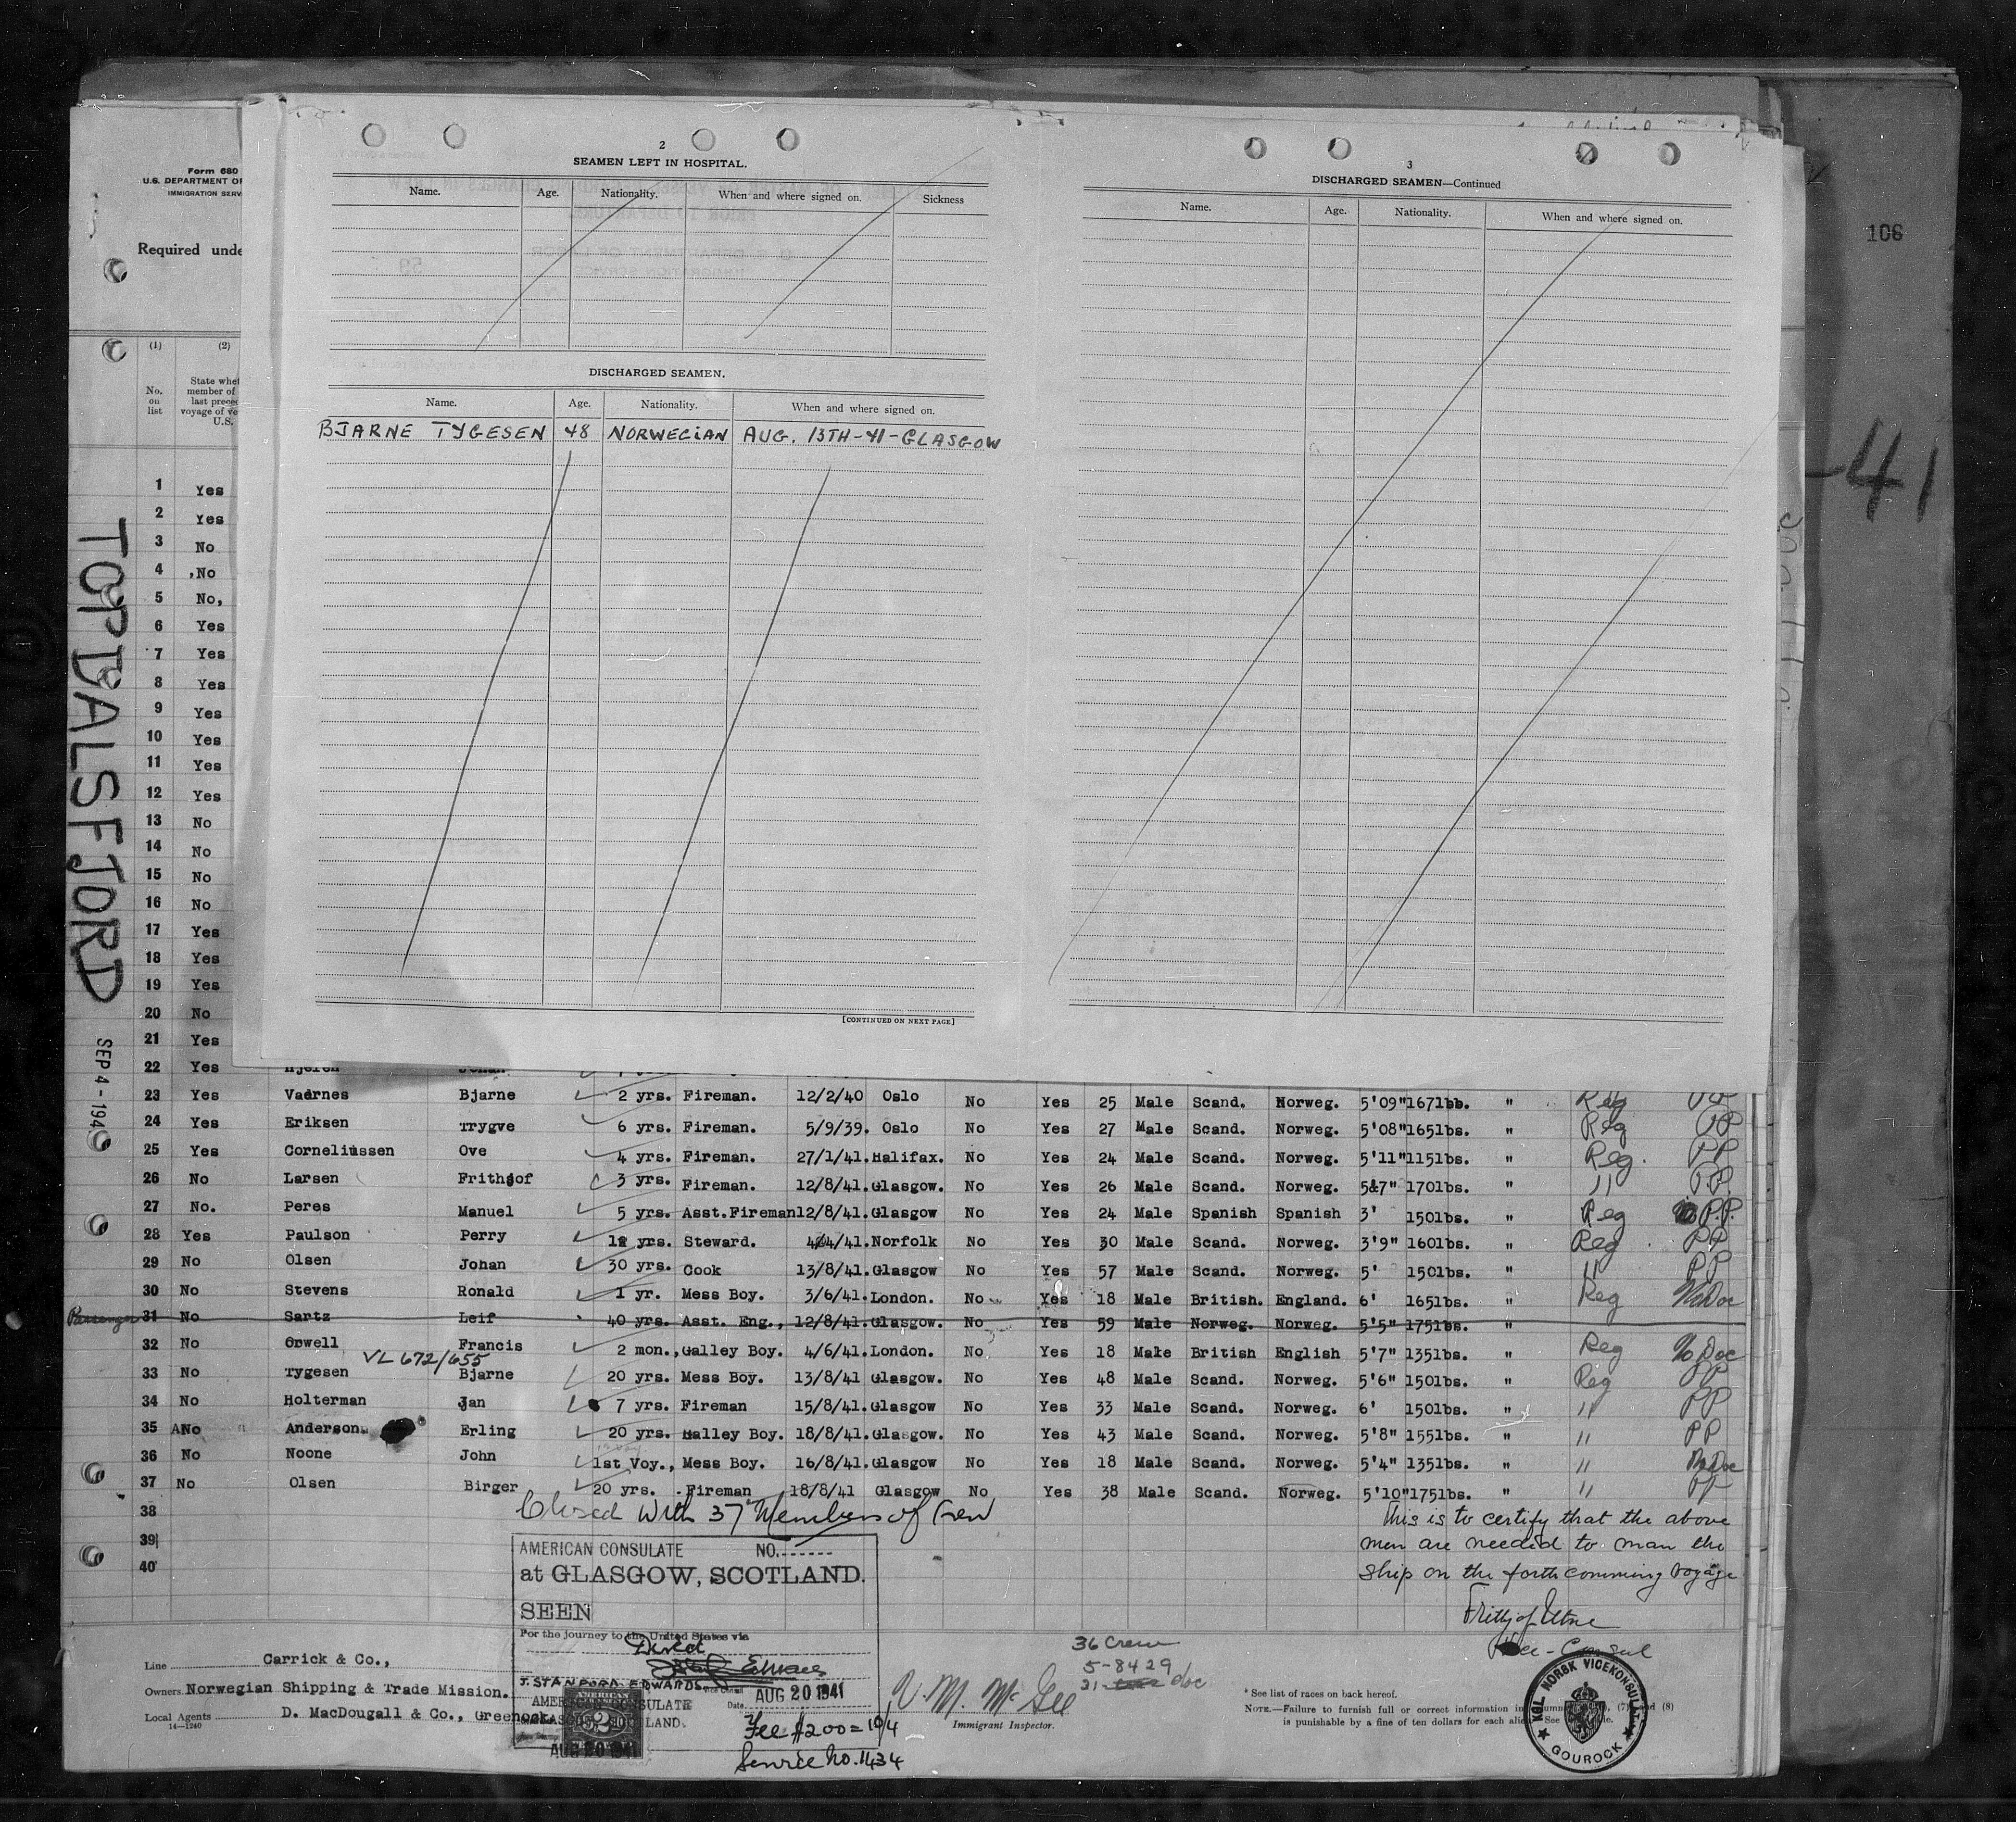 106
-41
Form 680
U.S. DEPARTMENT OF
IMMIGRATION SERV
Required unde
(1) (2)
No. on list
State whet
member of
last preced
voyage of ve
U.S.
TOPDALSFJORD
SEP 4 - 194
2
SEAMEN LEFT IN HOSPITAL.
Name. Age. Nationality. When and where signed on. Sickness
DISCHARGED SEAMEN.
Name. Age. Nationality. When and where signed on.
BJARNE TYGESEN 48 NORWEGIAN AUG. 13TH-41-GLASGOW
[CONTINUED ON NEXT PAGE]
3
DISCHARGED SEAMEN—Continued
Name. Age. Nationality. When and where signed on.
1 Yes
2 Yes
3 No
4 No
5 No,
6 Yes
7 Yes
8 Yes
9 Yes
10 Yes
11 Yes
12 Yes
13 No
14 No
15 No
16 No
17 Yes
18 Yes
19 Yes
20 No
21 Yes
22 Yes
23 Yes Vadrnes Bjarne 2 yrs. Fireman. 12/2/40 Oslo No Yes 25 Male Scand. Norweg. 5'09" 167lbs. " Reg PP
24 Yes Eriksen Trygve 6 yrs. Fireman. 5/9/39. Oslo No Yes 27 Male Scand. Norweg. 5'08" 165lbs. " Reg PP
25 Yes Corneliussen Ove 4 yrs. Fireman. 27/1/41. Halifax. No Yes 24 Male Scand. Norweg. 5'11" 115lbs. " Reg. PP
26 No Larsen Frithjof 3 yrs. Fireman. 12/8/41. Glasgow. No Yes 26 Male Scand. Norweg. 5'7" 170lbs. " " P.P.
27 No. Peres Manuel 5 yrs. Asst.Fireman 12/8/41. Glasgow No Yes 24 Male Spanish Spanish 3' 150lbs. " Reg P.P.
28 Yes Paulson Perry yrs. Steward. 4/4/41. Norfolk No Yes 30 Male Scand. Norweg. 3'9" 160lbs. " Reg. PP
29 No Olsen Johan 30 yrs. Cook 13/8/41. Glasgow No Yes 57 Male Scand. Norweg. 5' 150lbs. " " PP
30 No Stevens Ronald 1 yr. Mess Boy. 3/6/41. London. No Yes 18 Male British. England. 6' 165lbs. " Reg No Doc
Passenger 31 No Sartz Leif 40 yrs. Asst. Eng., 12/8/41. Glasgow. No Yes 59 Male Norweg. Norweg. 5'5" 175lbs. "
32 No Orwell Francis 2 mon., Galley Boy. 4/6/41. London. No Yes 18 Male British English 5'7" 135lbs. " Reg No Doc
VL 672/655
33 No Tygesen Bjarne 20 yrs. Mess Boy. 13/8/41 Glasgow. No Yes 48 Male Scand. Norweg. 5'6" 150lbs. " Reg PP
34 No Holterman Jan 7 yrs. Fireman 15/8/41. Glasgow No Yes 33 Male Scand. Norweg. 6' 150lbs. " " PP
35 No Anderson. Erling 20 yrs. Galley Boy. 18/8/41. Glasgow. No Yes 43 Male Scand. Norweg. 5'8" 155lbs. " " PP
36 No Noone John 1st Voy., Mess Boy. 16/8/41. Glasgow No Yes 18 Male Scand. Norweg. 5'4" 135lbs. " " No Doc
37 No Olsen Birger 20 yrs. Fireman 18/8/41 Glasgow No Yes 38 Male Scand. Norweg. 5'10" 175lbs. " " PP
38
39
40
Closed with 37 Members of Crew
This is to certify that the above
men are needed to man the
ship on the forthcomming voyage
Vice-Consul
AMERICAN CONSULATE NO.
at GLASGOW, SCOTLAND.
SEEN
For the journey to the United States via
Direct
J. STANFORD EDWARDS
AMERICAN CONSULATE
Date AUG 20 1941
AUG 20 1941
Fee $2.00 = 10/4
Service No. 1434
Line Carrick & Co.,
Owners Norwegian Shipping & Trade Mission.
Local Agents D. MacDougall & Co., Greenock.
14—1240
36 Crew
5-8429
31 doc
V. M. McGee
Immigrant Inspector.
* See list of races on back hereof.
NOTE.—Failure to furnish full or correct information in (7) and (8)
is punishable by a fine of ten dollars for each alien. See
KGL NORSK VICEKONSULAT
GOUROCK